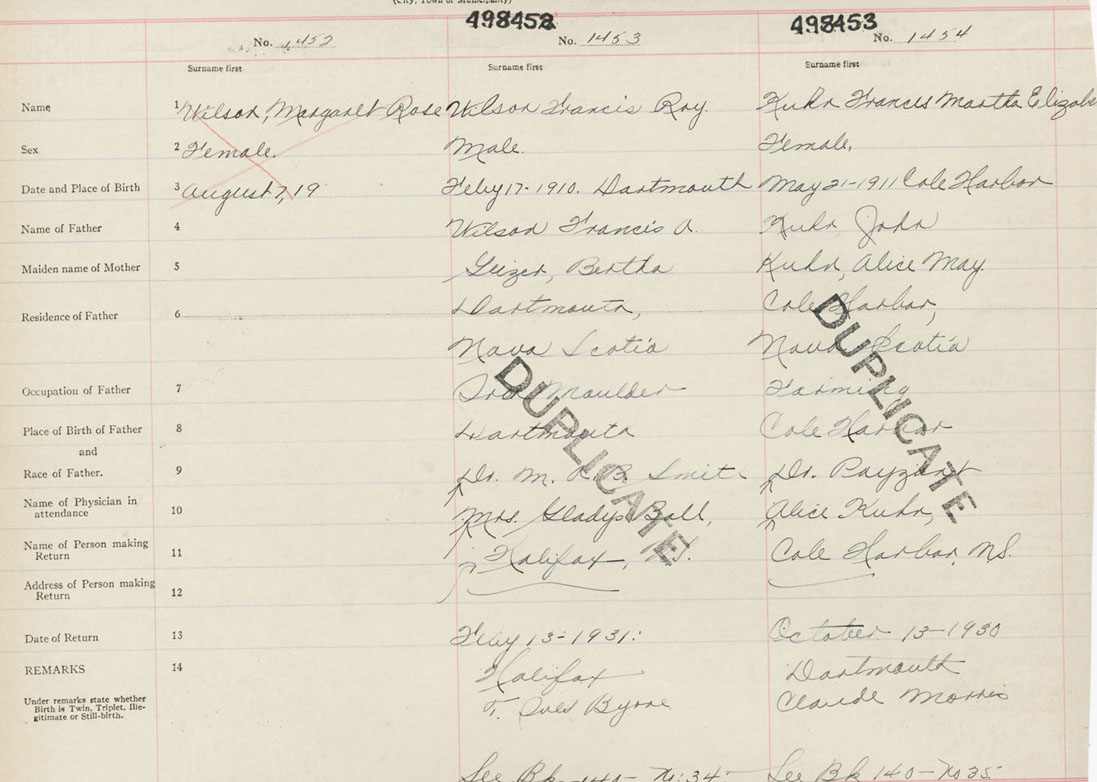 (City, Town or Municipality)
498452 498453
No. 1452 No. 1453 No. 1454
Surname first Surname first Surname first
Name 1 Wilson, Margaret Rose Wilson Francis Roy. Kuhn Francis Martha Elizabe
Sex 2 Female. Male. Female.
Date and Place of Birth 3 August 7, 19 Feby 17-1910. Dartmouth May 21-1911 Cole Harbor
Name of Father 4 Wilson Francis A. Kuhn, John
Maiden name of Mother 5 Geizer, Bertha Kuhn, Alice May.
Residence of Father 6 Dartmouth, Cole Harbor,
Nova Scotia Nova Scotia
DUPLICATE DUPLICATE
Occupation of Father 7 Iron Moulder Farming
Place of Birth of Father 8 Dartmouth Cole Harbor
and
Race of Father. 9 Dr. M. A. B. Smith Dr. Payzant
Name of Physician in
attendance 10 Mrs. Gladys Ball, Alice Kuhn,
Name of Person making
Return 11 Halifax, Cole Harbor, N.S.
Address of Person making
Return 12
Date of Return 13 13-1931: October 13-1930
REMARKS 14 Halifax Dartmouth
Under remarks state whether
Birth is Twin, Triplet, Ille-
gitimate or Still-birth.
Byrne Claude Morris
See Bk 140- No: 34 See Bk 140- No 35